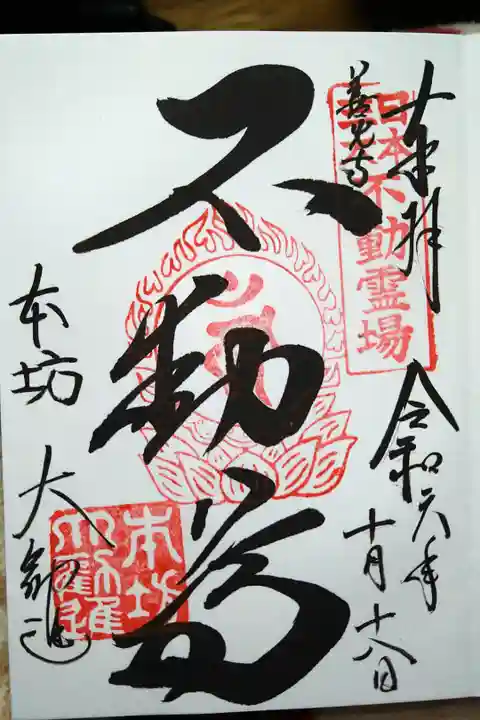 奉拝
日本
不動霊場
善光寺
令和六年
十月十八日
不動尊
本坊 大勧進
本坊
大勧進